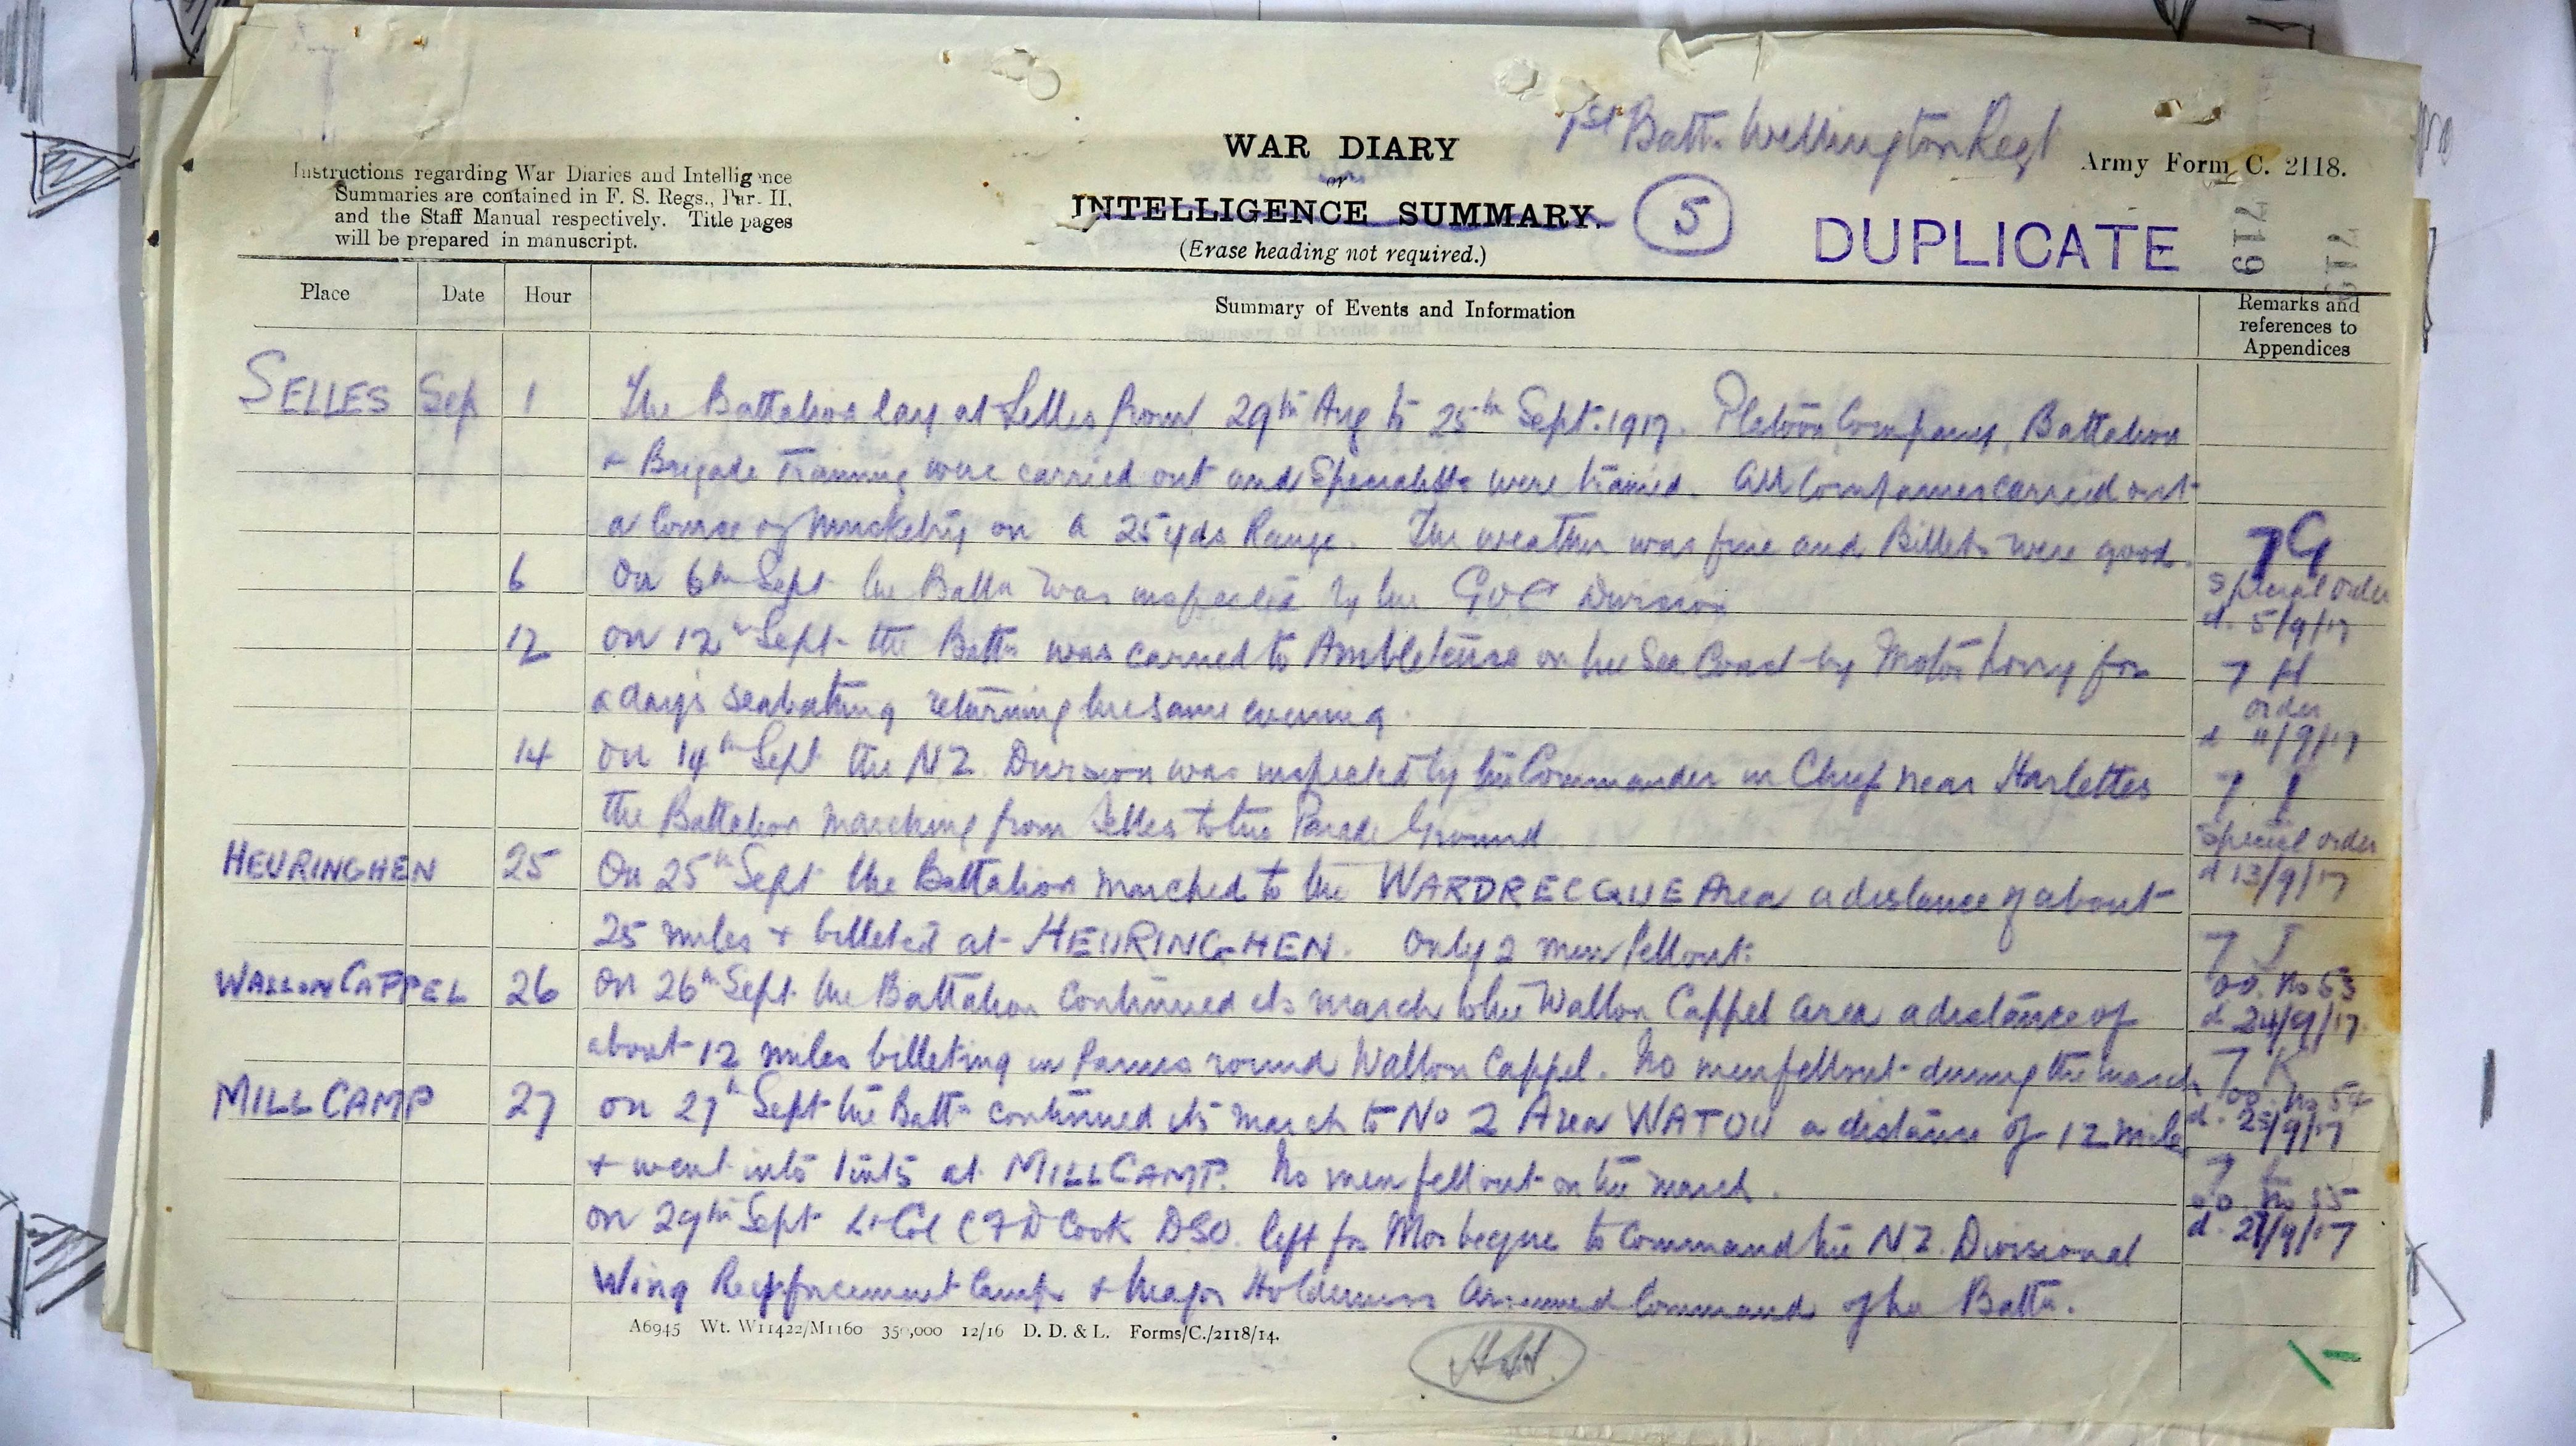 1st Battn. Wellington Regt
WAR DIARY
or
INTELLIGENCE SUMMARY.
(Erase heading not required.)
5
Army Form C. 2118.
DUPLICATE
719
719
Instructions regarding War Diaries and Intelligence
Summaries are contained in F. S. Regs., Par. II,
and the Staff Manual respectively. Title pages
will be prepared in manuscript.
Place Date Hour Summary of Events and Information Remarks and
references to
Appendices
SELLES Sep 1 The Battalion lay at Selles from 29th Aug to 25th Sept. 1917. Platoon, Company, Battalion
+ Brigade Training were carried out and Specialists were trained. All Companies carried out
a Course of Musketry on a 25 yds Range. The weather was fine and Billets were good.
7G
6 On 6th Sept the Battn was inspected by the GOC Division
Special Order
d. 5/9/17
12 On 12th Sept the Battn was carried to Ambleteuse on the Sea Coast by Motor Lorry for
7 H
a days seabathing returning the same evening.
order
d 11/9/17
14 On 14th Sept the NZ. Division was inspected by the Commander in Chief near Harlettes
7 I
the Battalion marching from Selles to the Parade Ground
Special order
d 13/9/17
HEURINGHEN 25 On 25th Sept the Battalion marched to the WARDRECQUE Area a distance of about
25 miles + billeted at HEURINGHEN. Only 2 men fell out.
7 J
OO. No 53
d 24/9/17.
WALLON CAPPEL 26 On 26th Sept the Battalion continued its march to the Wallon Cappel area a distance of
about 12 miles billeting in farms round Wallon Cappel. No men fell out during the march
7 K
OO. No 54
d. 25/9/17
MILL CAMP 27 On 27th Sept the Battn continued its march to No 2 Area WATOU a distance of 12 miles
+ went into tents at MILL CAMP. No men fell out on the march.
7 L
OO. No 55
d. 27/9/17
On 29th Sept Lt Col C F D Cook DSO. left for Morbeque to Command the NZ. Divisional
Wing Reinforcement Camp + Major Holderness assumed Command of the Battn.
A6945 Wt. W11422/M1160 350,000 12/16 D. D. & L. Forms/C./2118/14.